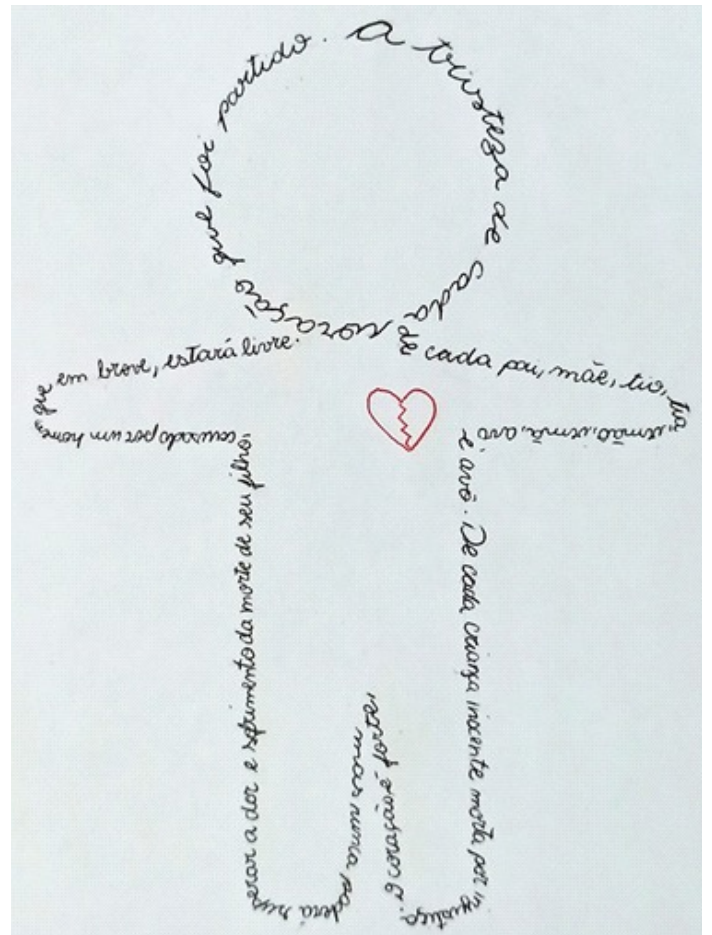 A tristeza de cada coração que foi partido.
de cada pai, mãe, tio, tia, irmão, irmã, avó
e avô. De cada criança inocente morta por injustiça.
O coração é forte,
mas nunca poderá superar a dor e sofrimento da morte de seu filho,
causado por um homem que em breve, estará livre.